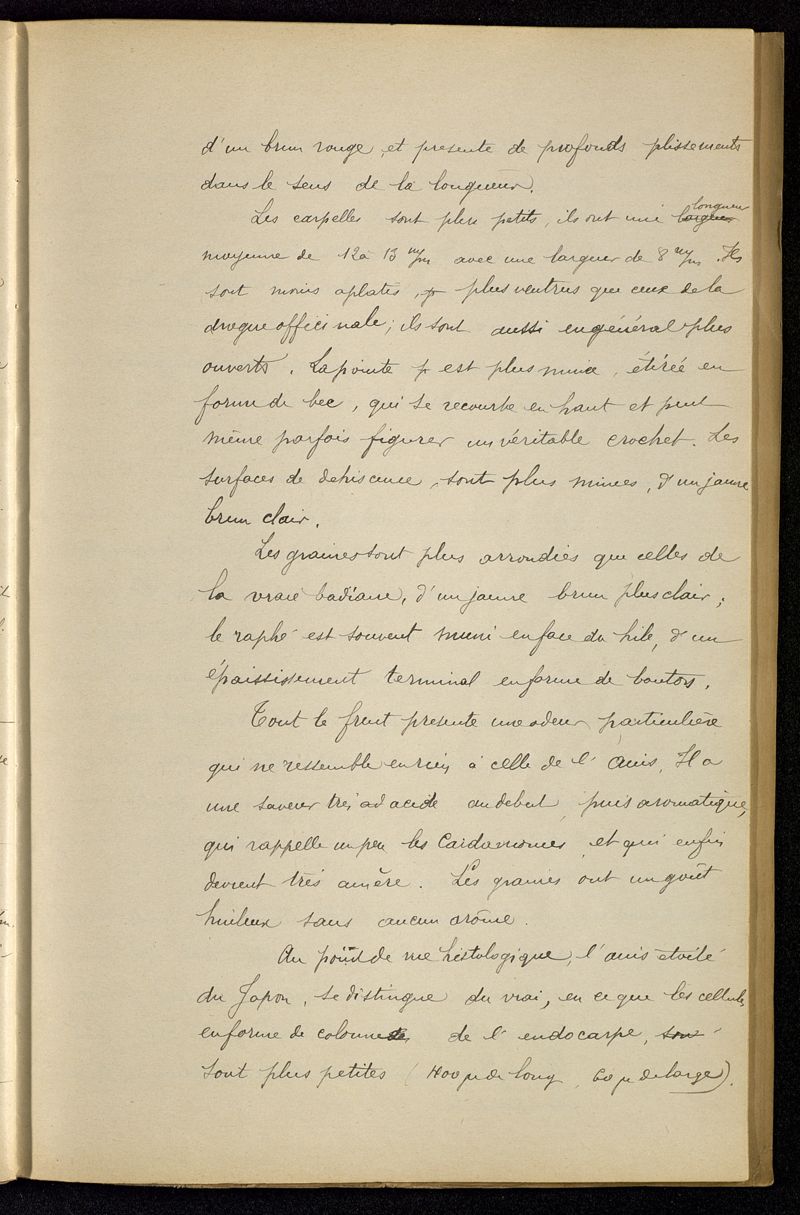 d'un brun rouge, et presente de profonds plissements
dans le sens de la longueur.
Les carpelles sont plus petits, ils ont une largeur longueur
moyenne de 12 à 13 m/m avec une largeur de 8 m/m. Ils
sont moins aplatis, plus ventrus que ceux de la
drogue officinale; ils sont aussi en général plus
ouverts. La pointe est plus mince, étirée en
forme de bec, qui se recourbe en haut et peut
même parfois figurer un véritable crochet. Les
surfaces de dehiscence, sont plus minces, d'un jaune
brun clair.
Les graines sont plus arrondies que celles de
la vraie badiane, d'un jaune brun plus clair;
le raphé est souvent muni en face du hile, d'un
épaississement terminal en forme de bouton.
Tout le fruit presente une odeur particulière
qui ne ressemble en rien à celle de l'Anis. Il a
une saveur très acide au debut, puis aromatique,
qui rappelle un peu les Cardamomes, et qui enfin
devient très amère. Les graines ont un goût
huileux sans aucun arôme.
Au point de vue histologique, l'anis étoilé
du Japon, se distingue du vrai, en ce que les cellules
en forme de colonnes de l'endocarpe, sont
sont plus petites (400 µ de long, 60 µ de large).